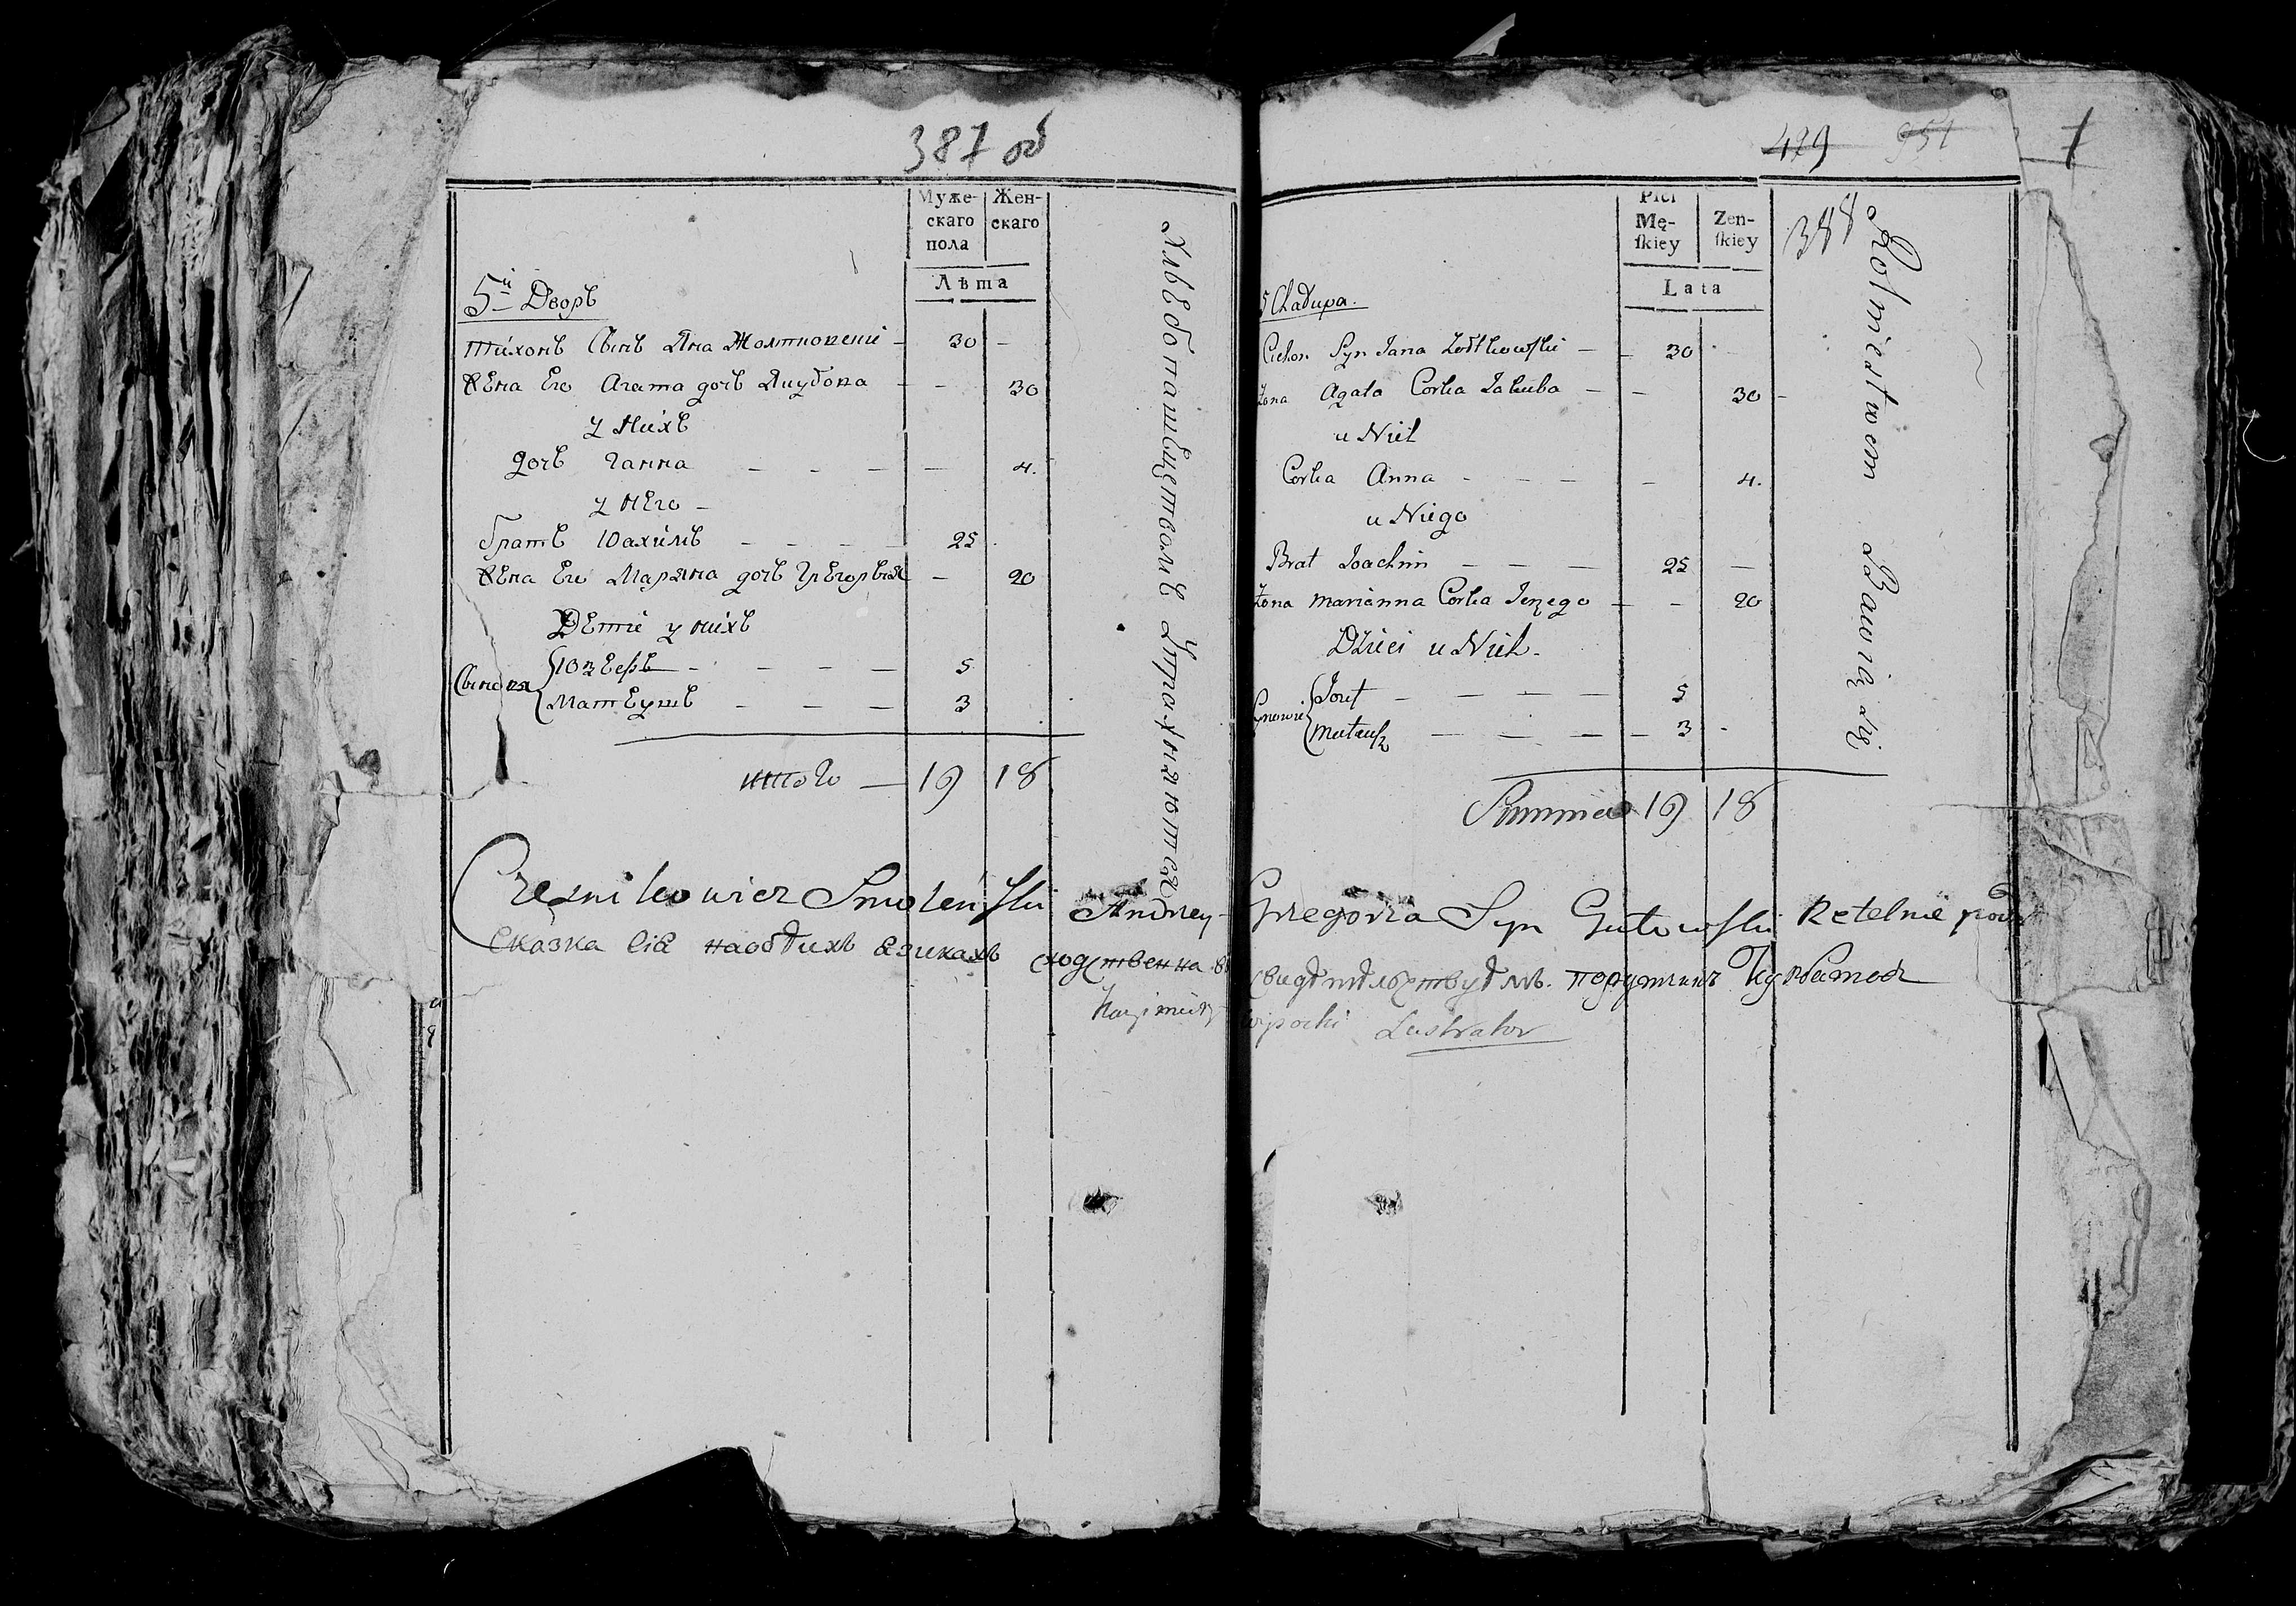 387 об
Муже-
скаго
пола
Жен-
скаго
Лѣта
5й Дворъ
Тихонъ Сынъ Яна Жолтковскій — 30 —
Жена Его Агата дочь Якубова — — 30
у Нихъ
дочь Ганна — — — — 4.
у нЕго —
братъ Юахимъ — — — — 25
Жена Его Марыана дочь — 20
ДЕти у нихъ
Сынови
Юзефъ — — — — 5
МатЕушъ — — — 3
итого — 19 18
ХлѣЕбопашеством
429 951 7
388
Płci
Mę-
ſkiey
Zen-
ſkiey
Lata
5 Chałupa.
Cichon Syn Jana Zołtkowſki — — 30
Żona Agata Corka Jakuba — — 30 —
u Nich
Corka Anna — — — — 4.
u Niego
Brat Joachim — — — 25 —
Żona Marianna Corka Jerzego — — 20
Dzieci u Nich.
Synowie
Jozef — — — — 5
Mateuſz — — — — 3
Rolnictwem Bawią się
Summa 19 18
Smoleńſki Andrzey Gregorza Syn Gutowſki Retelnie
Сказка сія на обѣихъ азикахъ сходственна въ свидѣтѣльствуѣмъ. порутчикъ
Kazimierz Lustrator